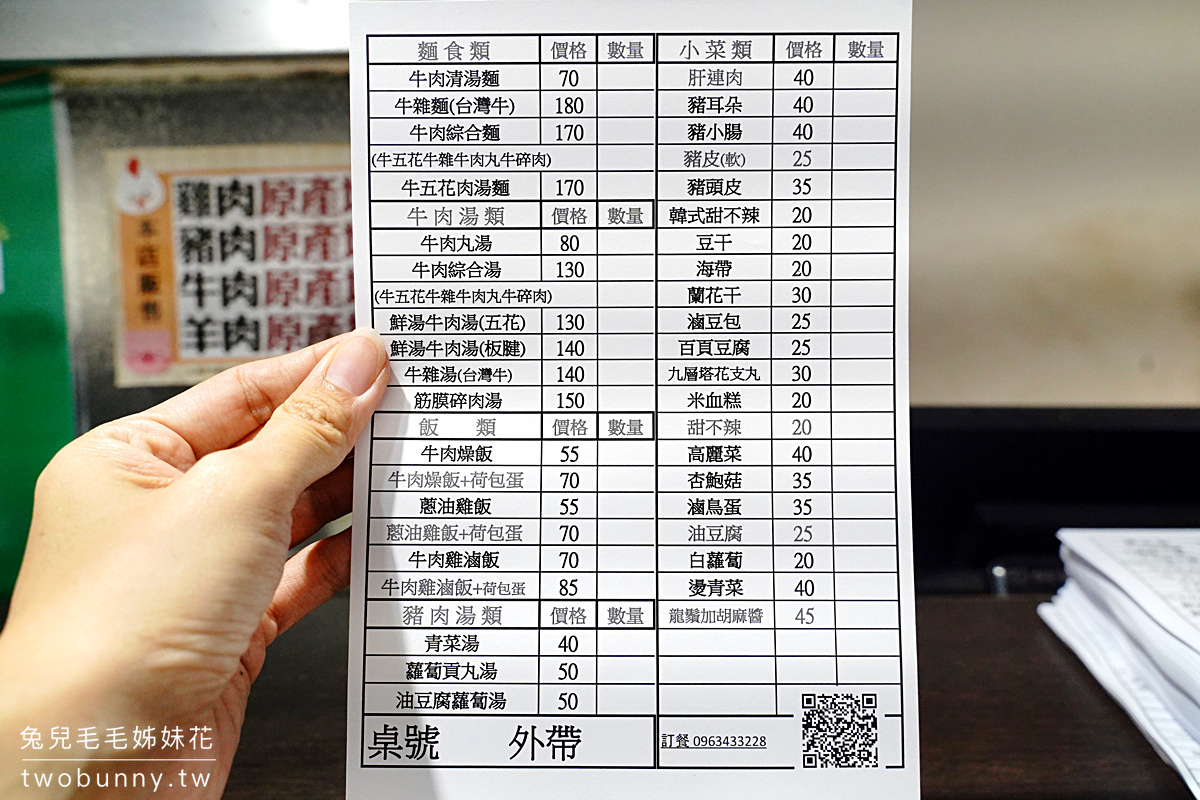 麵食類 價格 數量
牛肉清湯麵 70
牛雜麵(台灣牛) 180
牛肉綜合麵 170
(牛五花牛雜牛肉丸牛碎肉)
牛五花肉湯麵 170
牛肉湯類 價格 數量
牛肉丸湯 80
牛肉綜合湯 130
(牛五花牛雜牛肉丸牛碎肉)
鮮湯牛肉湯(五花) 130
鮮湯牛肉湯(板腱) 140
牛雜湯(台灣牛) 140
筋膜碎肉湯 150
飯 類 價格 數量
牛肉燥飯 55
牛肉燥飯+荷包蛋 70
蔥油雞飯 55
蔥油雞飯+荷包蛋 70
牛肉雞滷飯 70
牛肉雞滷飯+荷包蛋 85
豬肉湯類 價格 數量
青菜湯 40
蘿蔔貢丸湯 50
油豆腐蘿蔔湯 50
桌號 外帶
小菜類 價格 數量
肝連肉 40
豬耳朵 40
豬小腸 40
豬皮(軟) 25
豬頭皮 35
韓式甜不辣 20
豆干 20
海帶 20
蘭花干 30
滷豆包 25
百頁豆腐 25
九層塔花支丸 30
米血糕 20
甜不辣 20
高麗菜 40
杏鮑菇 35
滷鳥蛋 35
油豆腐 25
白蘿蔔 20
燙青菜 40
龍鬚加胡麻醬 45
訂餐 0963433228
本店販售
雞肉原產地
豬肉原產地
牛肉原產地
羊肉原產地
兔兒毛毛姊妹花
twobunny.tw